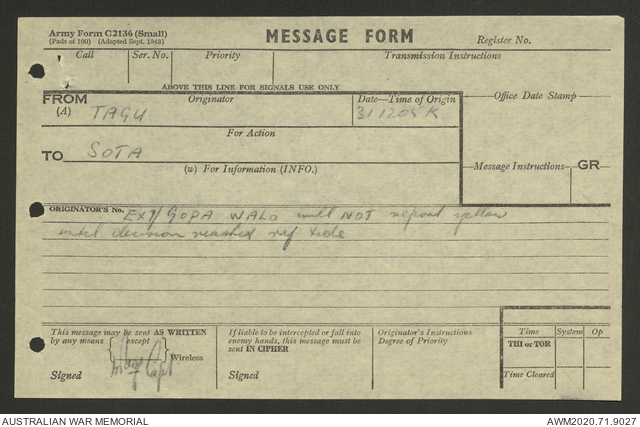 Army Form C2136 (Small)
(Pads of 100) (Adapted Sept. 1943)
MESSAGE FORM
Register No.
Call
Ser. No.
Priority
Transmission Instructions
ABOVE THIS LINE FOR SIGNALS USE ONLY
FROM
(A)
Originator
TAGU
Date—Time of Origin
311205K
Office Date Stamp
For Action
TO
SOTA
(w) For Information (INFO.)
Message Instructions
GR
ORIGINATOR'S No.
GOPA WALO will NOT
until decision reached ref tide
This message may be sent AS WRITTEN
by any means
except
Wireless
Signed
Capt
If liable to be intercepted or fall into
enemy hands, this message must be
sent IN CIPHER
Signed
Originator's Instructions
Degree of Priority
Time
System
Op
THI or TOR
Time Cleared
AUSTRALIAN WAR MEMORIAL
AWM2020.71.9027